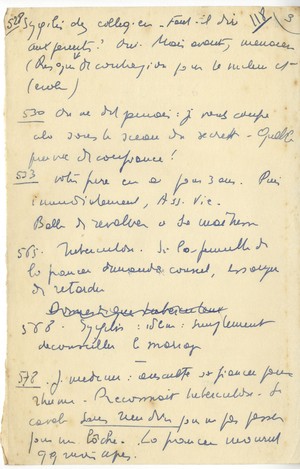 528 Syphilis chez collégien - Faut-il dire 118 3
aux parents? Oui. Mais avant, menacer
(Risque de contagion pour le milieu et
l'école)
530 On ne dit jamais : je vous coupe
sous le sceau du secret - Quelle
preuve de confiance!
533 votre père en a pour 3 ans. Puis
immédiatement, Ass. Vie.
Balle de revolver
565. Tuberculose. Si la famille de
la fiancée demande conseil, essayer
de retarder
568. Syphilis : idem : simplement
déconseiller le mariage
578. J. médecin : ausculte sa fiancée pour
rhume. Reconnait tuberculose. Se
marie sans rien dire pour ne pas passer
pour un lâche. La fiancée mourut
qq mois après.